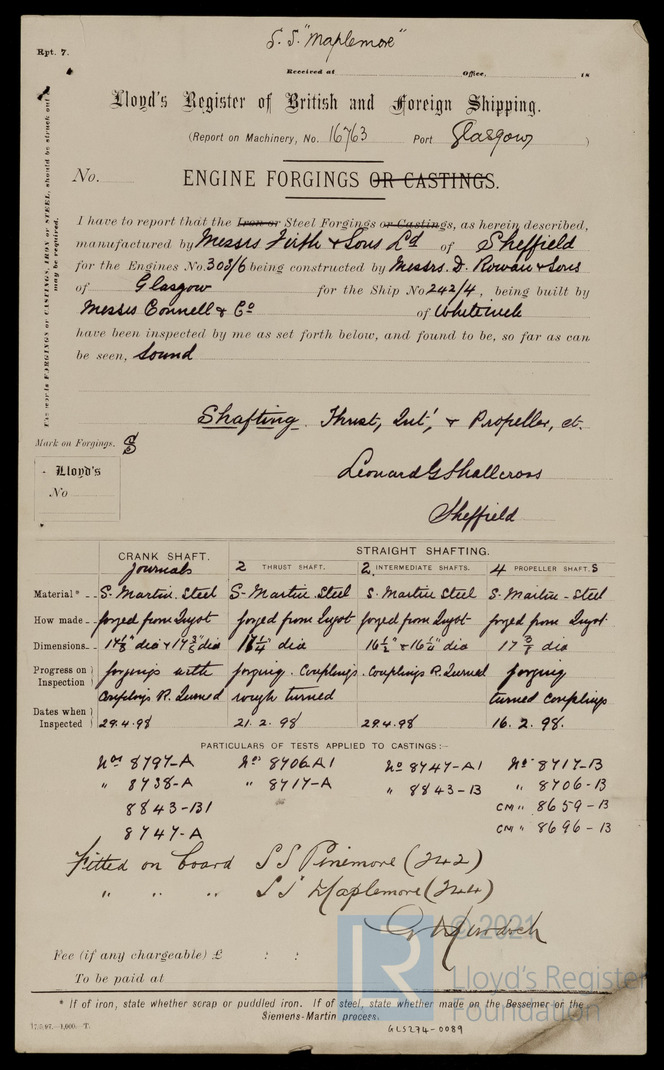 S.S. "Maplemore"
Rpt. 7.
Received at Office, 18
Lloyd's Register of British and Foreign Shipping.
(Report on Machinery, No. 16763 Port Glasgow )
No. ENGINE FORGINGS OR CASTINGS.
I have to report that the Iron or Steel Forgings or Castings, as herein described,
manufactured by Messrs Firth & Sons Ld of Sheffield
for the Engines No. 303/6 being constructed by Messrs. D. Rowan & Sons
of Glasgow for the Ship No 242/4, being built by
Messrs Connell & Co of Whiteinch
have been inspected by me as set forth below, and found to be, so far as can
be seen, Sound
The words FORGINGS or CASTINGS, IRON or STEEL, should be struck out as
may be required.
Shafting. Thrust, Int', & Propeller, et.
Mark on Forgings. S
Lloyd's
No
Leonard G Shallcross
Sheffield
CRANK SHAFT. STRAIGHT SHAFTING.
Journals 2 THRUST SHAFT. 2 INTERMEDIATE SHAFTS. 4 PROPELLER SHAFT.S
Material* S. Martin. Steel S- Martin. Steel S. Martin Steel S. Martin - Steel
How made forged from Ingot forged from Ingot forged from Ingot forged from Ingot.
Dimensions dia & dia 17 1/4" dia 16 1/2" & 16 1/4" dia 17 3/8 dia
Progress on Inspection forgings with couplings R. Turned forging. Couplings rough turned Couplings R. Turned forging turned couplings
Dates when Inspected 29.4.98 21.2.98 29.4.98 16.2.98.
PARTICULARS OF TESTS APPLIED TO CASTINGS:-
Nos 8797-A Nos 8706A1 No 8747-A1 Nos 8717-B
" 8738-A " 8717-A " 8843-B " 8706-B
8843-B1 CM " 8659-B
8747-A CM " 8696-B
Fitted on board SS Pinemore (242)
" " " SS Maplemore (244)
G Murdoch
Fee (if any chargeable) £ : :
To be paid at
* If of iron, state whether scrap or puddled iron. If of steel, state whether made on the Bessemer or the
Siemens-Martin process.
1,000.-T.
GLS274-0089
© 2021
LR
Lloyd's Register
Foundation